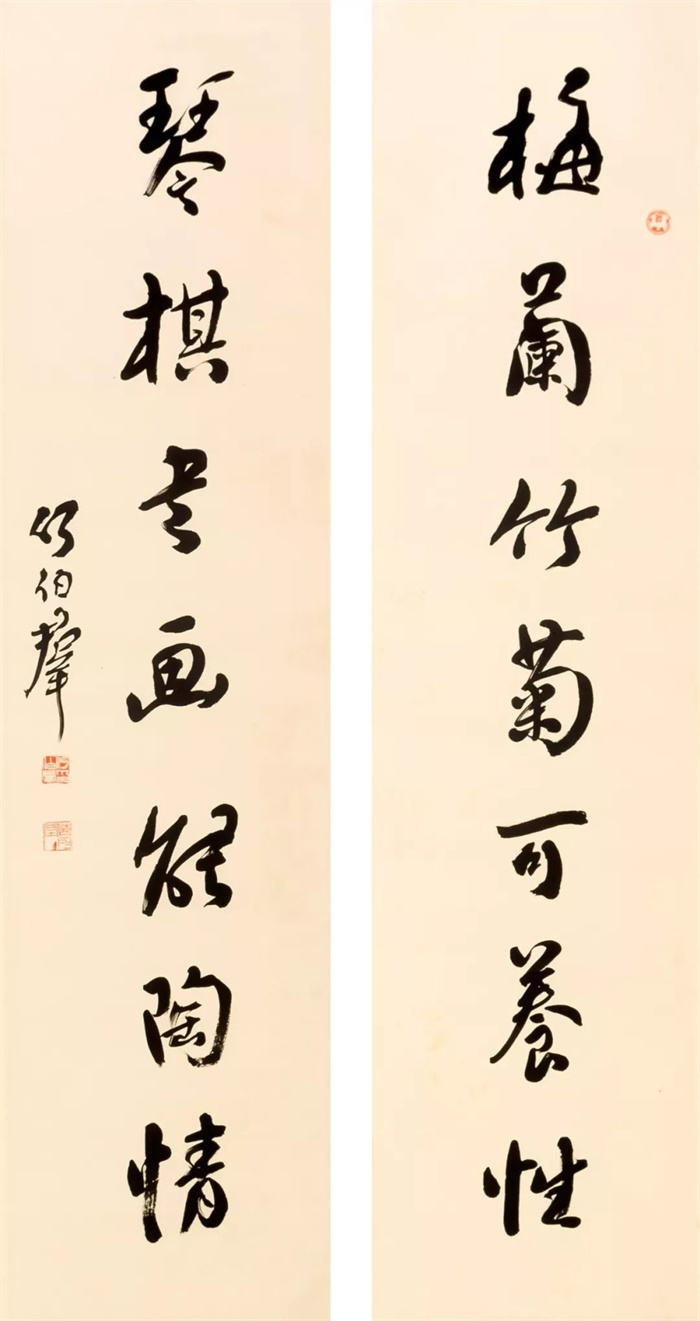 梅蘭竹菊可養性
琴棋书画能陶情
伯羣